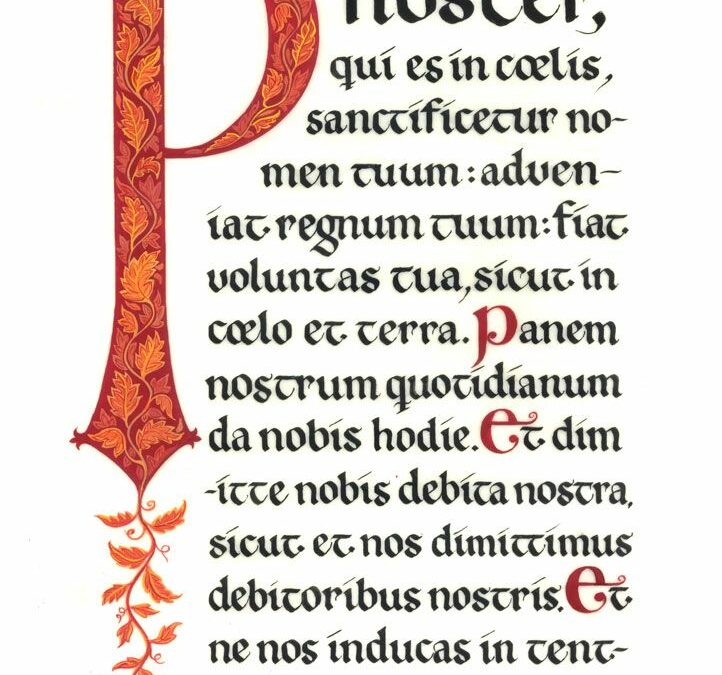 Pnoster,
qui es in cœlis,
sanctificetur no-
men tuum: adven-
iat regnum tuum: fiat
voluntas tua, sicut in
cœlo et terra. Panem
nostrum quotidianum
da nobis hodie. Et dim
-itte nobis debita nostra,
sicut et nos dimittimus
debitoribus nostris. Et
ne nos inducas in tent-